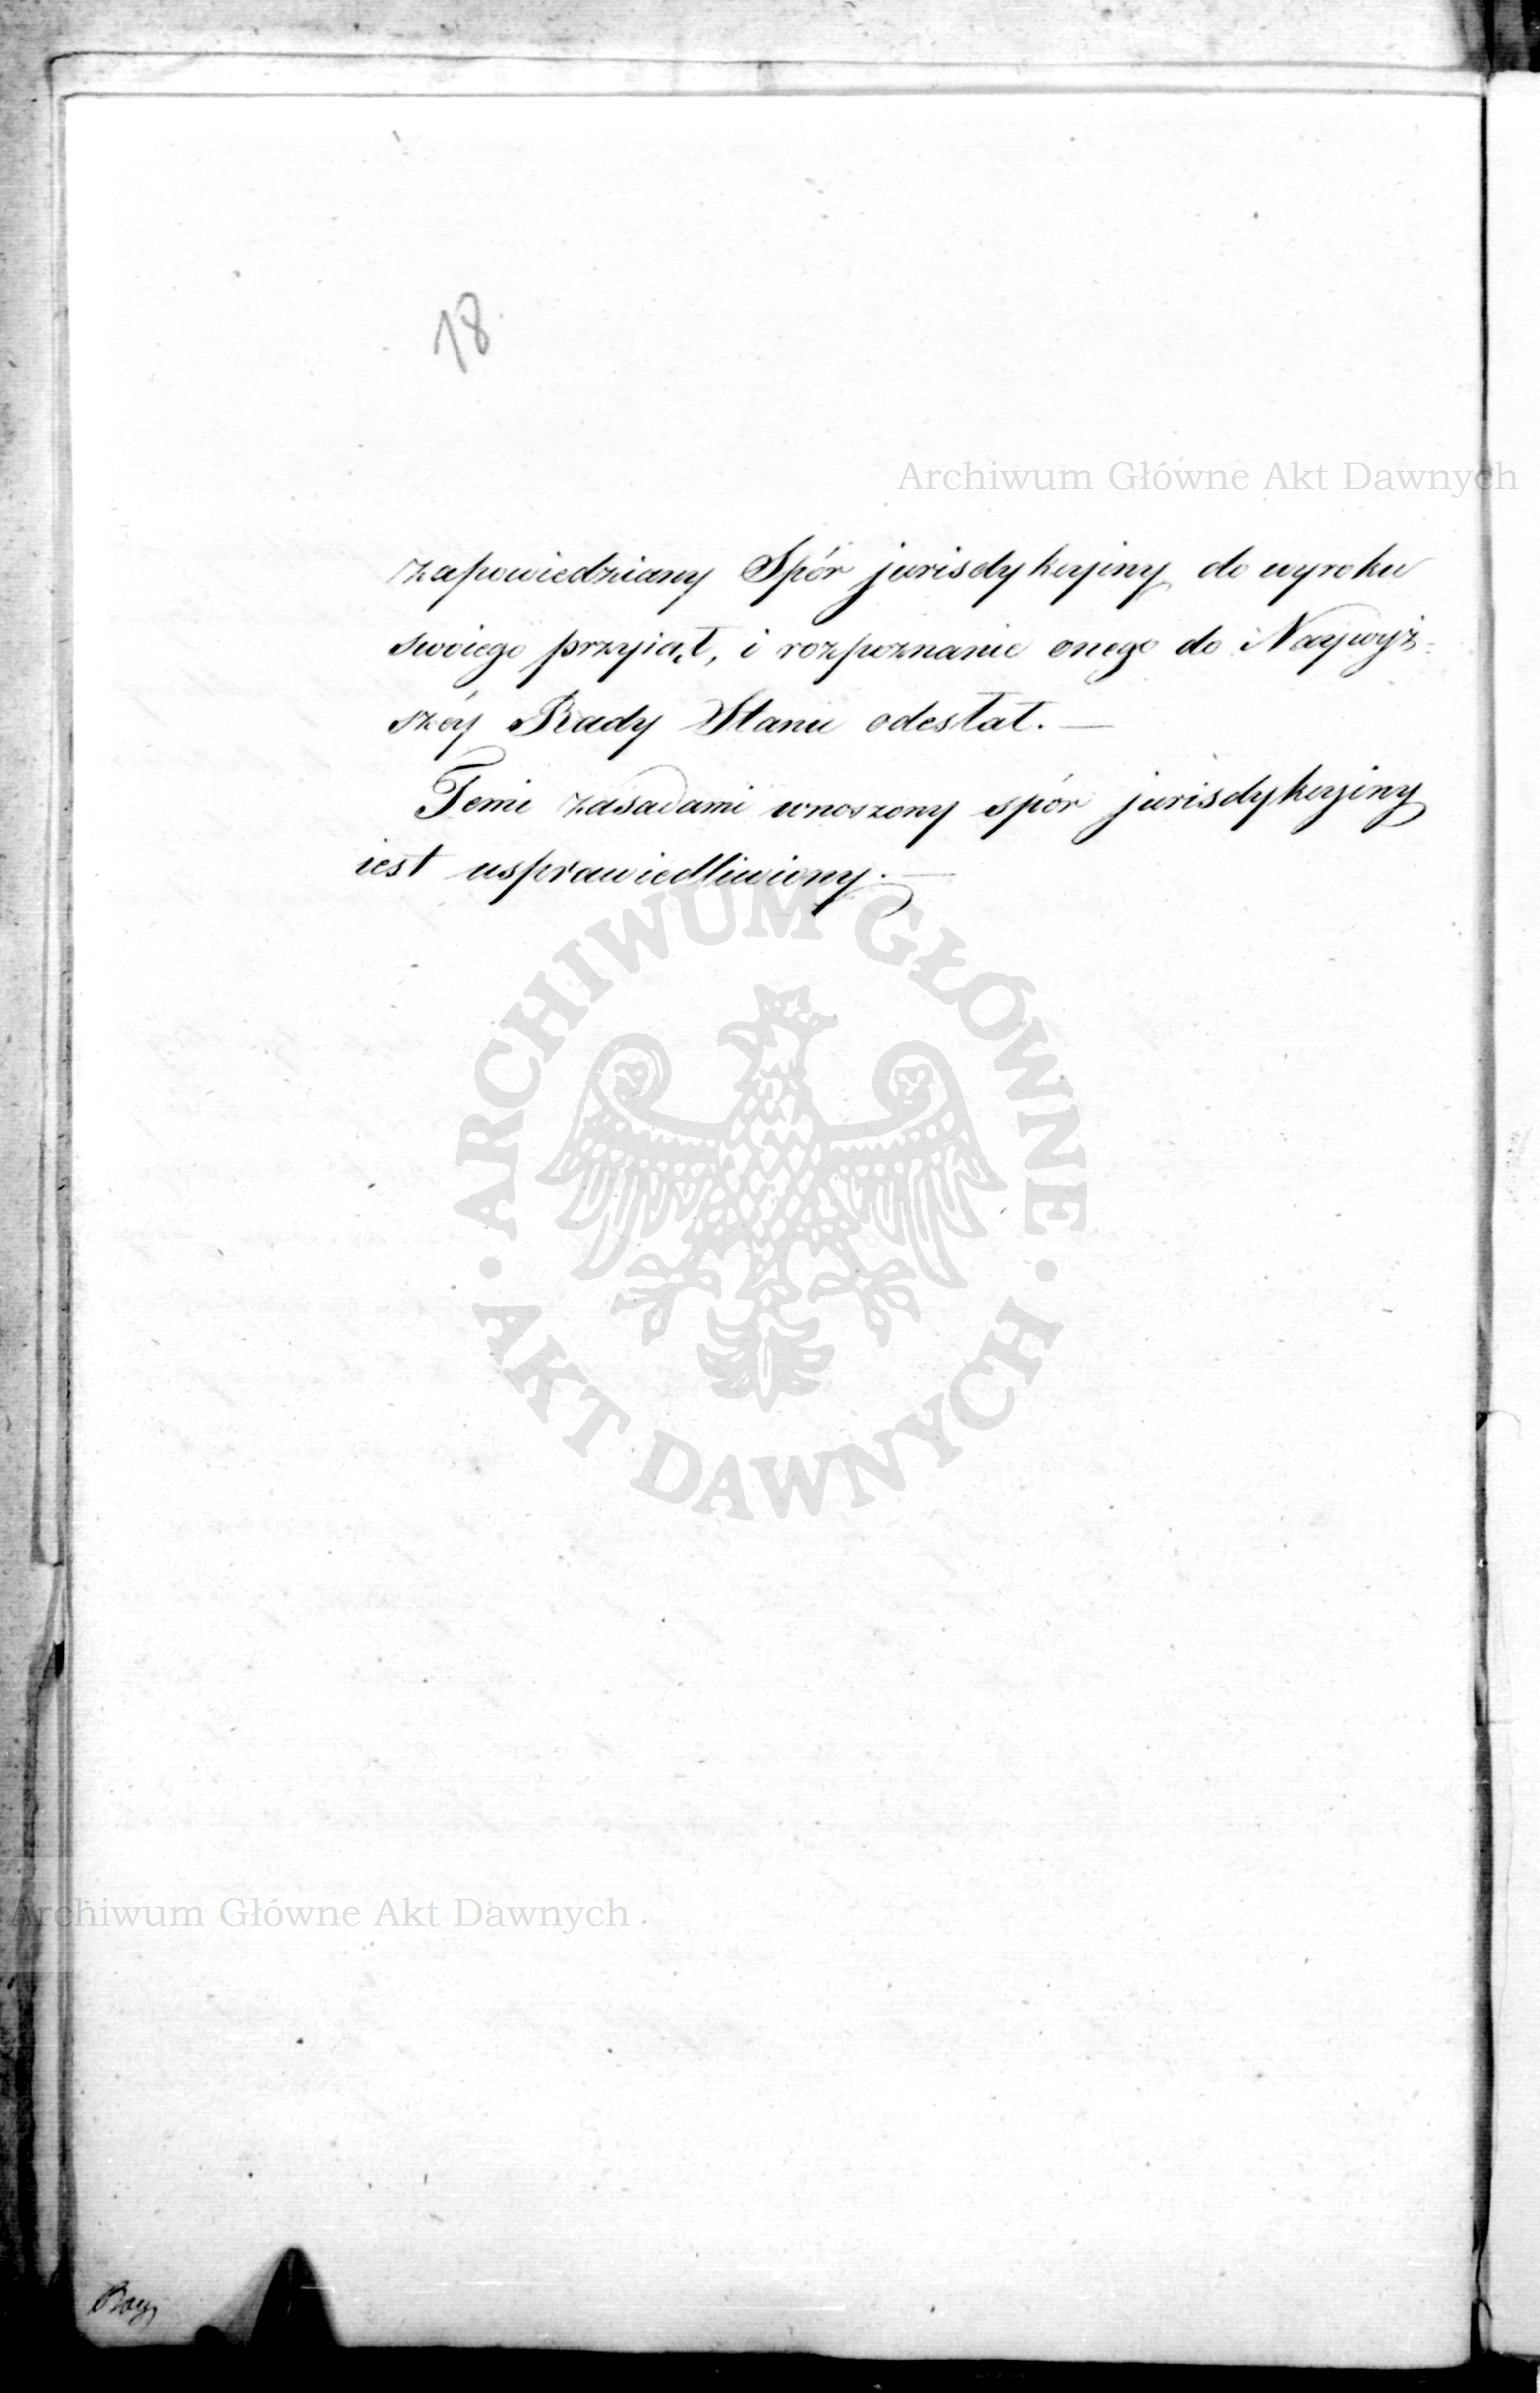 18.
Archiwum Główne Akt Dawnych
zapowiedziany Spór jurisdykcyiny do wyroku
swoiego przyiął, i rozpoznanie onego do Naywyż-
széy Rady Stanu odesłał. —
Temi zasadami wnoszony spór jurisdykcyiny
iest usprawiedliwiony. —
ARCHIWUM GŁÓWNE
AKT DAWNYCH
Archiwum Główne Akt Dawnych